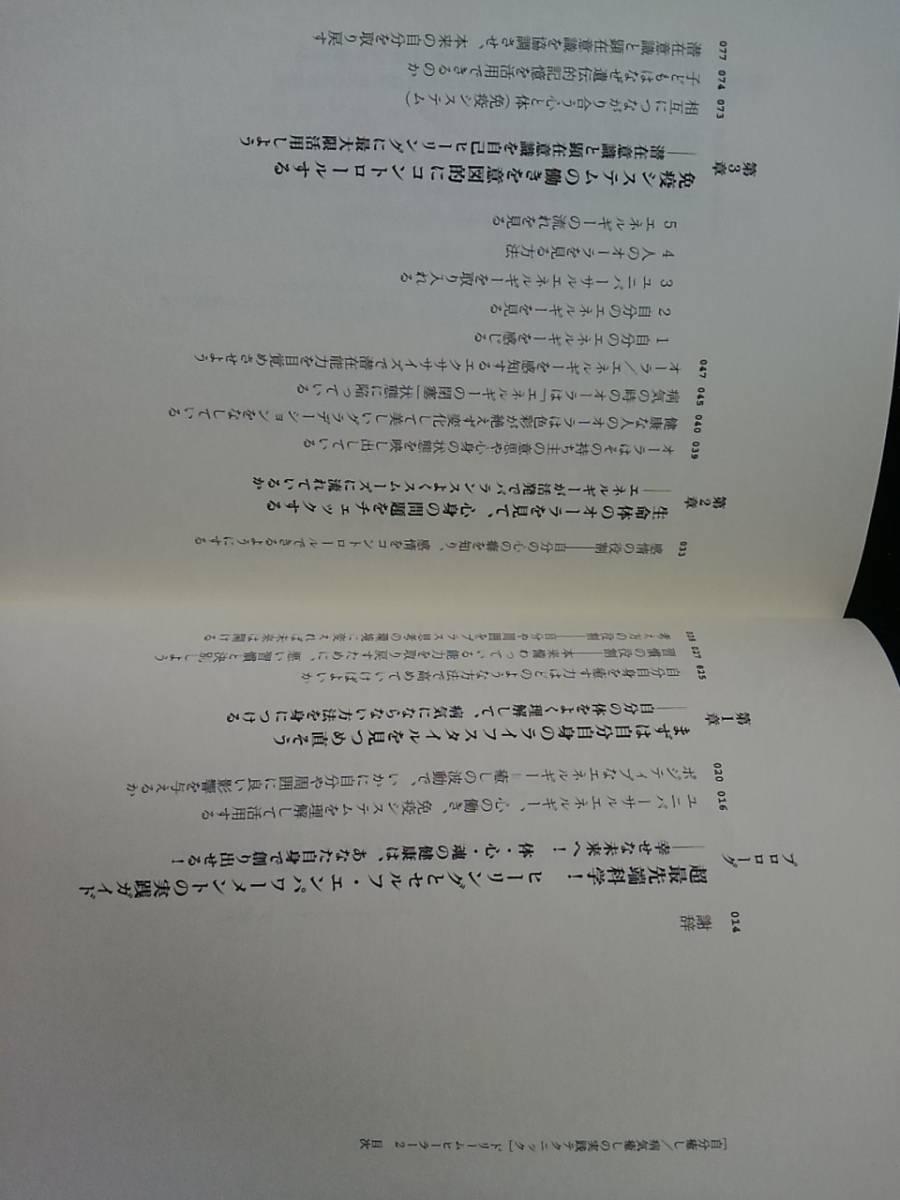 ［自分癒し／病気癒しの実践テクニック］ドリームヒーラー2　目次
014
謝辞
プロローグ
超最先端科学！
ヒーリングとセルフ・エンパワーメントの実践ガイド
――幸せな未来へ！　体・心・魂の健康は、あなた自身で創り出せる！
016
ユニバーサルエネルギー、心の働き、免疫システムを理解して活用する
020
ポジティブなエネルギー＝癒しの波動で、いかに自分や周囲に良い影響を与えるか
第1章
まずは自分自身のライフスタイルを見つめ直そう
――自分の体をよく理解して、病気にならない方法を身につける
025
自分自身を癒す力はどのような方法で高めていけばよいか
027
習慣の役割――本来備わっている能力を取り戻すために、悪い習慣と決別しよう
考え方の役割――自分や周囲をプラス思考の環境に変えれば未来は開ける
033
感情の役割――自分の心の癖を知り、感情をコントロールできるようにする
第2章
生命体のオーラを見て、心身の問題をチェックする
――エネルギーが活発でバランスよくスムーズに流れているか
039
オーラはその持ち主の意思や心身の状態を映し出している
040
健康な人のオーラは色彩が絶えず変化して美しいグラデーションをなしている
045
病気の時のオーラは「エネルギーの閉塞」状態に陥っている
047
オーラ／エネルギーを感知するエクササイズで潜在能力を目覚めさせよう
1　自分のエネルギーを感じる
2　自分のエネルギーを見る
3　ユニバーサルエネルギーを取り入れる
4　人のオーラを見る方法
5　エネルギーの流れを見る
第3章
免疫システムの働きを意図的にコントロールする
――潜在意識と顕在意識を自己ヒーリングに最大限活用しよう
073
相互につながり合う心と体（免疫システム）
074
子どもはなぜ遺伝的記憶を活用できるのか
077
潜在意識と顕在意識を協調させ、本来の自分を取り戻す